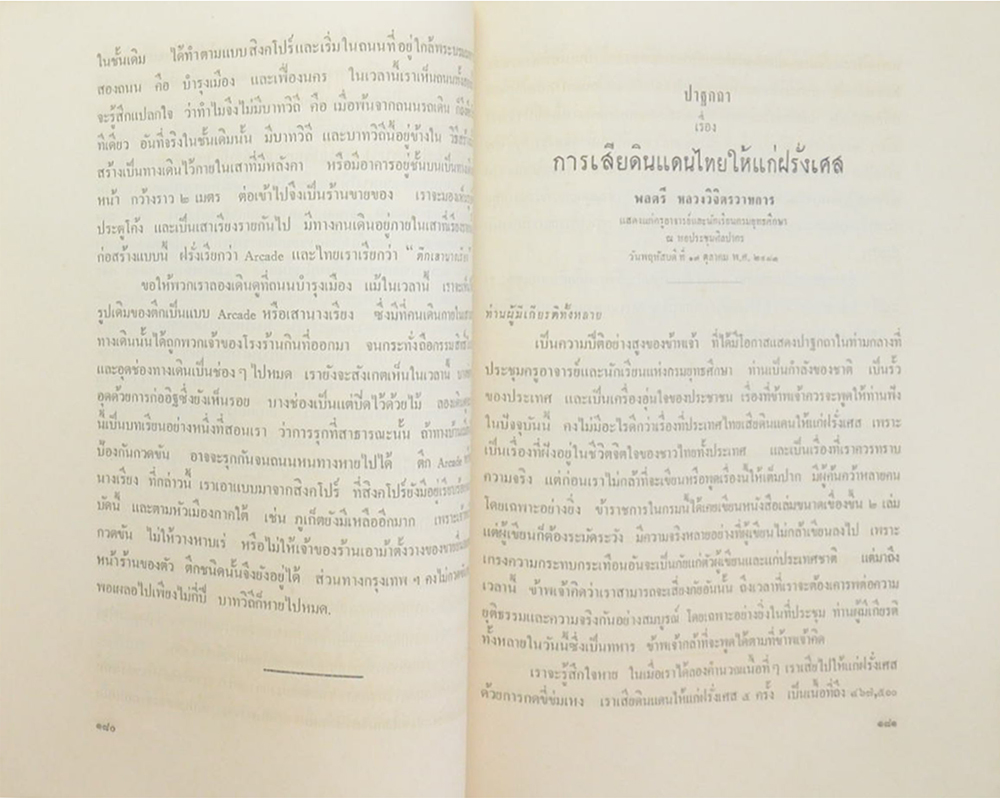 ในชั้นเดิม ได้ทำตามแบบสิงคโปร์และเริ่มในถนนที่อยู่ใกล้
สองถนน คือ บำรุงเมือง และเฟื่องนคร ในเวลานี้เราเห็นถนน
จะรู้สึกแปลกใจ ว่าทำไมจึงไม่มีบาทวิถี คือ เมื่อพ้นจากถนนรถเดิน
ทีเดียว อันที่จริงในชั้นเดิมนั้น มีบาทวิถี และบาทวิถีนี้อยู่ข้างใน
สร้างเป็นทางเดินไว้ภายในเสาที่มีหลังคา หรือมีอาคารอยู่ชั้นบนเป็น
หน้า กว้างราว ๒ เมตร ต่อเข้าไปจึงเป็นร้านขายของ เราจะมองเห็น
ประตูโค้ง และเป็นเสาเรียงรายกันไป มีทางคนเดินอยู่ภายในเสาที่
ก่อสร้างแบบนี้ ฝรั่งเรียกว่า Arcade และไทยเราเรียกว่า “
ขอให้พวกเราลองเดินดูที่ถนนบำรุงเมือง แม้ในเวลานี้
รูปเดิมของตึกเป็นแบบ Arcade หรือเสานางเรียง ซึ่งมีที่คนเดินภายใน
ทางเดินนั้นได้ถูกพวกเจ้าของโรงร้านกินที่ออกมา จนกระทั่งถือกรรมสิทธิ์
และอุดช่องทางเดินเป็นช่อง ๆ ไปหมด เรายังจะสังเกตเห็นในเวลานี้
อุดด้วยการก่ออิฐซึ่งยังเห็นรอย บางช่องเป็นแต่ปิดไว้ด้วยไม้
นี้เป็นบทเรียนอย่างหนึ่งที่สอนเรา ว่าการรุกที่สาธารณะนั้น ถ้าทางบ้านเมือง
ป้องกันกวดขัน อาจจะรุกกันจนถนนหนทางหายไปได้ ตึก Arcade
นางเรียง ที่กล่าวนี้ เราเอาแบบมาจากสิงคโปร์ ที่สิงคโปร์ยังมีอยู่
บัดนี้ และตามหัวเมืองภาคใต้ เช่น ภูเก็ตยังมีเหลืออีกมาก
กวดขัน ไม่ให้วางหาบเร่ หรือไม่ให้เจ้าของร้านเอาม้าตั้งวางของขาย
หน้าร้านของตัว ตึกชนิดนั้นจึงยังอยู่ได้ ส่วนทางกรุงเทพ ฯ คงไม่กวดขัน
พอเผลอไปเพียงไม่กี่ปี บาทวิถีก็หายไปหมด.
๑๘๐
ปาฐกถา
เรื่อง
การเสียดินแดนไทยให้แก่ฝรั่งเศส
พลตรี หลวงวิจิตรวาทการ
แสดงแก่ครูอาจารย์และนักเรียนกรมยุทธศึกษา
ณ หอประชุมศิลปากร
วันพฤหัสบดี ที่ ๑๗ ตุลาคม พ.ศ. ๒๔๘๓
ท่านผู้มีเกียรติทั้งหลาย
เป็นความปีติอย่างสูงของข้าพเจ้า ที่ได้มีโอกาสแสดงปาฐกถาในท่ามกลางที่
ประชุมครูอาจารย์และนักเรียนแห่งกรมยุทธศึกษา ท่านเป็นกำลังของชาติ เป็นรั้ว
ของประเทศ และเป็นเครื่องอุ่นใจของประชาชน เรื่องที่ข้าพเจ้าควรจะพูดให้ท่านฟัง
ในปัจจุบันนี้ คงไม่มีอะไรดีกว่าเรื่องที่ประเทศไทยเสียดินแดนให้แก่ฝรั่งเศส เพราะ
เป็นเรื่องที่ฝังอยู่ในชีวิตจิตใจของชาวไทยทั้งประเทศ และเป็นเรื่องที่เราควรทราบ
ความจริง แต่ก่อนเราไม่กล้าที่จะเขียนหรือพูดเรื่องนี้ให้เต็มปาก มีผู้ค้นคว้าหลายคน
โดยเฉพาะอย่างยิ่ง ข้าราชการในกรมนี้ได้เคยเขียนหนังสือเล่มขนาดเขื่องขึ้น ๒ เล่ม
แต่ผู้เขียนก็ต้องระมัดระวัง มีความจริงหลายอย่างที่ผู้เขียนไม่กล้าเขียนลงไป เพราะ
เกรงความกระทบกระเทือนอันจะเป็นภัยแก่ตัวผู้เขียนและแก่ประเทศชาติ แต่มาถึง
เวลานี้ ข้าพเจ้าคิดว่าเราสามารถจะเสี่ยงภัยอันนั้น ถึงเวลาที่เราจะต้องเคารพต่อความ
ยุติธรรมและความจริงกันอย่างสมบูรณ์ โดยเฉพาะอย่างยิ่งในที่ประชุม ท่านผู้มีเกียรติ
ทั้งหลายในวันนี้ซึ่งเป็นทหาร ข้าพเจ้ากล้าที่จะพูดได้ตามที่ข้าพเจ้าคิด
เราจะรู้สึกใจหาย ในเมื่อเราได้ลองคำนวณเนื้อที่ ๆ เราเสียไปให้แก่ฝรั่งเศส
ด้วยการกดขี่ข่มเหง เราเสียดินแดนให้แก่ฝรั่งเศส ๕ ครั้ง เป็นเนื้อที่ถึง ๔๖๗,๕๐๐
๑๘๑